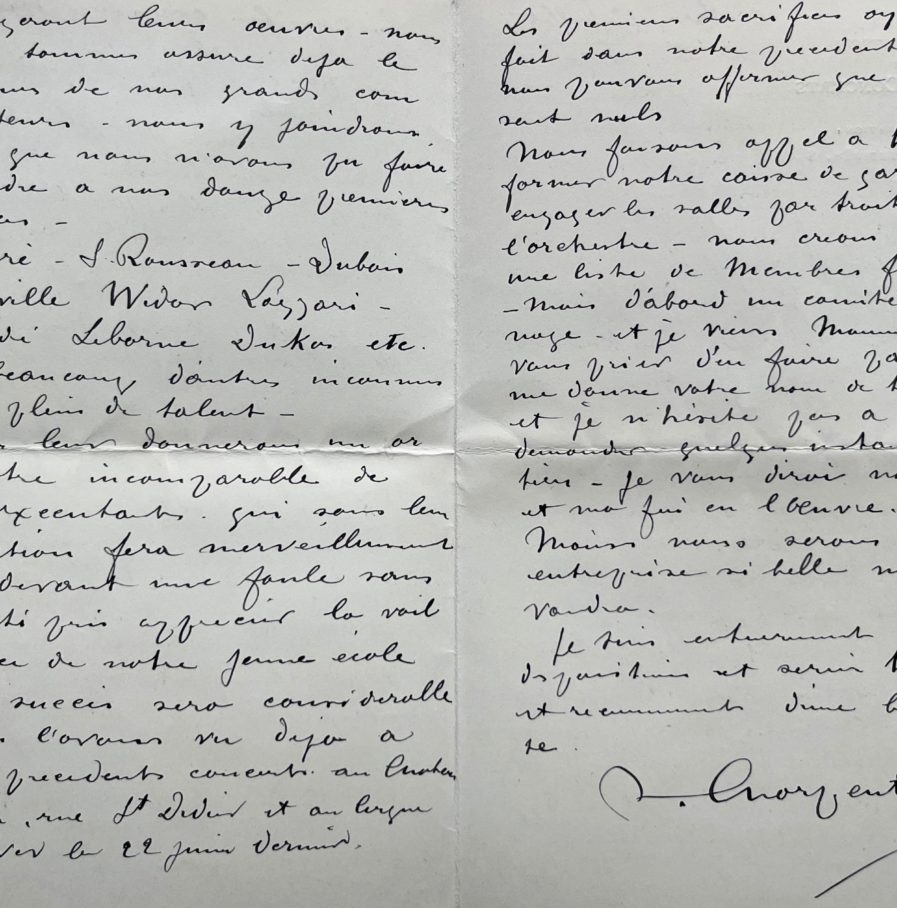 geront leurs oeuvres - nous
sommes assuré deja le
de nos grands com
teurs - nous y joindrons
que nous n'avons pu faire
dre a nos douze premieres
ré - S. Rousseau - Dubois
ville Widor Lazzari -
Leborne Dukas etc.
beaucoup d'autres inconnus
plein de talent -
leur donnerons un or
tre incomparable de
exécutants. qui sous leur
tion fera merveilleusement
devant une foule sans
ti pris apprecier la vail
ce de notre jeune école
succès sera considerable
l'avons vu deja a
precedents concerts. au
, rue St Didier et au Cirque
ver le 22 juin dernier.
Les premiers sacrifices ay
fait dans notre precedent
nous pouvons affirmer que
sont nuls
Nous faisons appel a
former notre caisse de gar
engager les salles par trait
l'orchestre - nous creons
une liste de Membres f
- Mais d'abord un comité
nage - et je viens Mons
vous prier d'en faire pa
me donne votre nom de
et je n'hésite pas a
demander quelques insta
tien - Je vous dirai
et ma foi en l'oeuvre.
Moins nous serons
entreprise si belle
vaudra.
Je suis entierement
dispositions et serai
et reconnaissants d'une
se.
Charpent